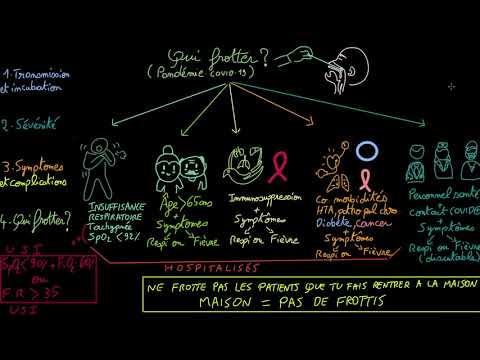 Qui frotter?
(Pandémie covid-19)
1. Transmission
et incubation
2. Sévérité
3. Symptomes
et complications
4. Qui frotter?
INSUFFISANCE
RESPIRATOIRE
Tachypnée
SpO₂ < 92%
Âge > 65 ans
+
Symptômes
Respi ou Fièvre
Immunosuppression
+
Symptômes
Respi ou Fièvre
Co morbidités
HTA, patho pul chro
Diabète, cancer
+
Symptômes
Respi ou Fièvre
Personnel santé
contact COVID⊕
Symptômes
Respi ou Fièvre
(discutable)
HOSPITALISÉS
USI
SpO₂ < 90%
ou
F.R > 35
USI
NE FROTTE PAS LES PATIENTS QUE TU FAIS RENTRER A LA MAISON
MAISON = PAS DE FROTTIS